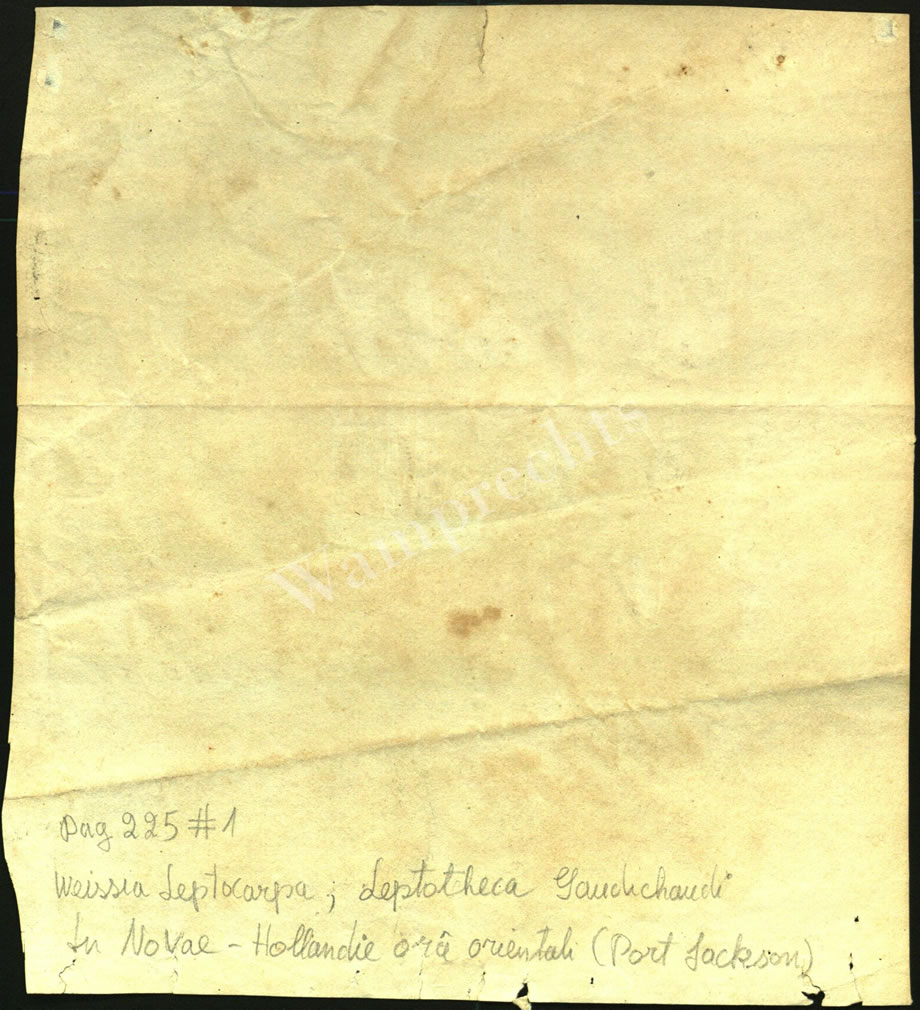 Wamprechts
Pag 225 #1
Weissia Leptocarpa ; Leptotheca Gaudichaudi
In NoVae - Hollandie orâ orientali (Port Jackson)